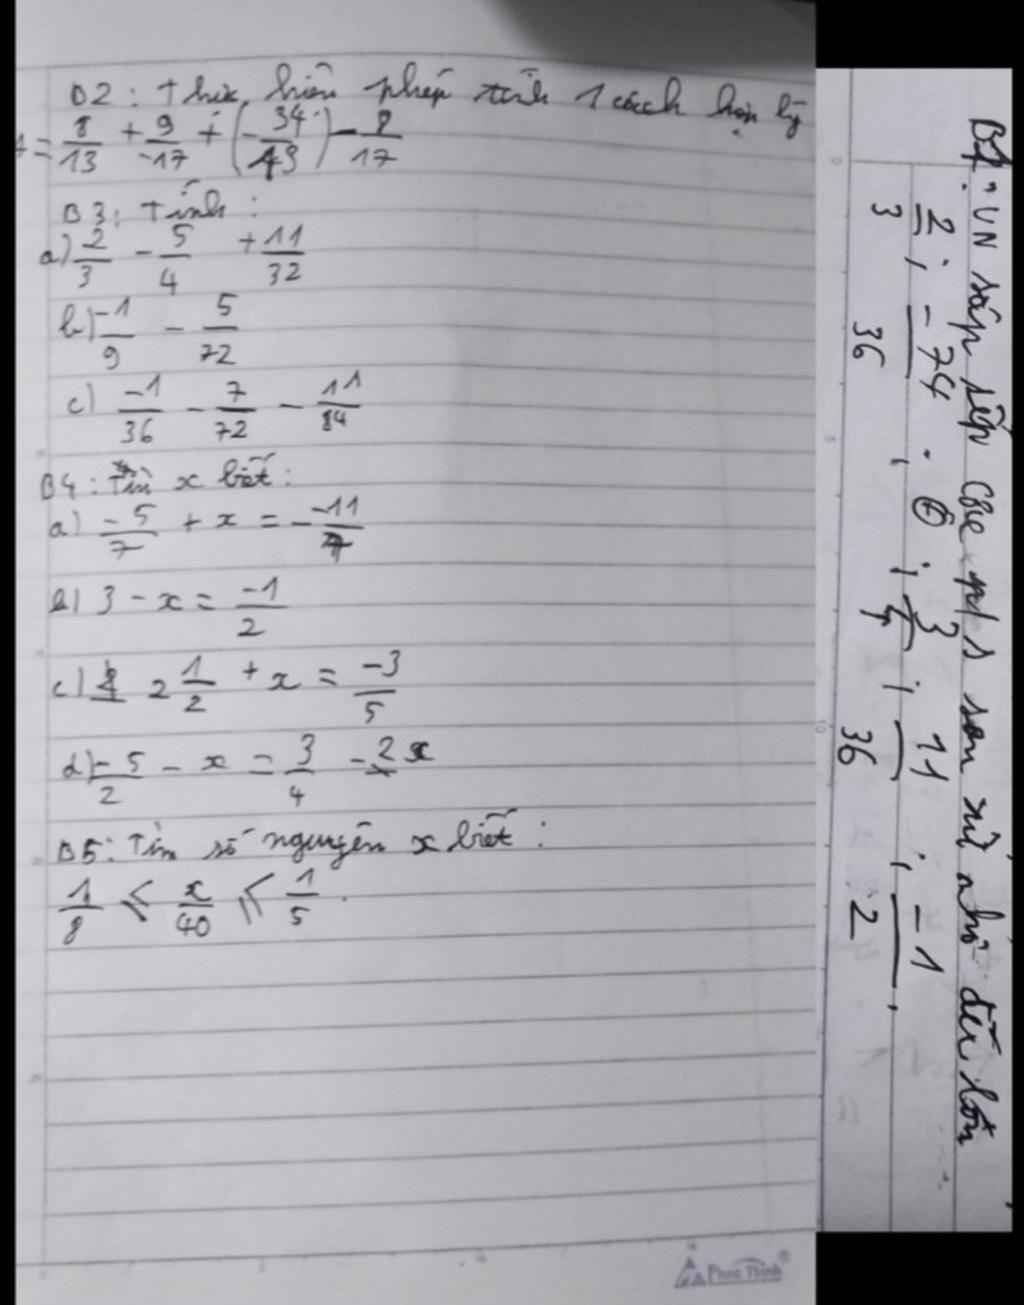 B2: Thực hiện phép tính 1 cách hợp lý
A = 8/13 + 9/-17 + (-34/13) - 8/17
B3: Tính:
a) 2/3 - 5/4 + 11/32
b) -1/9 - 5/72
c) -1/36 - 7/72 - 11/84
B4: Tìm x biết:
a) -5/7 + x = - -11/7
b) 3 - x = -1/2
c) 2 1/2 + x = -3/5
d) -5/2 - x = 3/4 - 2x
B5: Tìm số nguyên x biết:
1/8 ≤ x/40 ≤ 1/5.
Phúc Thịnh
B1: VN sắp xếp các p/s sau từ nhỏ đến lớn
2/3 ; -74/36 ; 0 ; 3/4 ; 11/36 ; -1/2.